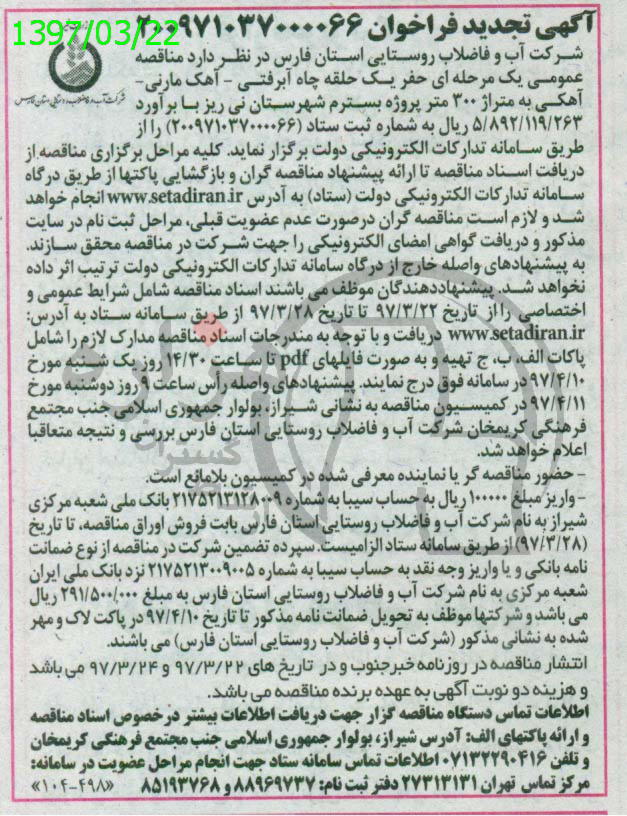 1397/03/22
آگهی تجدید فراخوان ۲۰۰۹۷۱۰۳۷۰۰۰۰۶۶
شرکت آب و فاضلاب روستایی استان فارس در نظر دارد مناقصه
عمومی یک مرحله ای حفر یک حلقه چاه آبرفتی - آهک مارنی-
آهکی به متراژ ۳۰۰ متر پروژه بسترم شهرستان نی ریز با برآورد
۵/۸۹۲/۱۱۹/۲۶۳ ریال به شماره ثبت ستاد (۲۰۰۹۷۱۰۳۷۰۰۰۰۶۶) را از
طریق سامانه تدارکات الکترونیکی دولت برگزار نماید. کلیه مراحل برگزاری مناقصه از
دریافت اسناد مناقصه تا ارائه پیشنهاد مناقصه گران و بازگشایی پاکتها از طریق درگاه
سامانه تدارکات الکترونیکی دولت (ستاد) به آدرس www.setadiran.ir انجام خواهد
شد و لازم است مناقصه گران درصورت عدم عضویت قبلی، مراحل ثبت نام در سایت
مذکور و دریافت گواهی امضای الکترونیکی را جهت شرکت در مناقصه محقق سازند.
به پیشنهادهای واصله خارج از درگاه سامانه تدارکات الکترونیکی دولت ترتیب اثر داده
نخواهد شد. پیشنهاددهندگان موظف می باشند اسناد مناقصه شامل شرایط عمومی و
اختصاصی را از تاریخ ۹۷/۳/۲۲ تا تاریخ ۹۷/۳/۲۸ از طریق سامانه ستاد به آدرس:
www.setadiran.ir دریافت و با توجه به مندرجات اسناد مناقصه مدارک لازم را شامل
پاکات الف، ب، ج تهیه و به صورت فایلهای pdf تا ساعت ۱۴/۳۰ روز یک شنبه مورخ
۹۷/۴/۱۰ در سامانه فوق درج نمایند. پیشنهادهای واصله رأس ساعت ۹ روز دوشنبه مورخ
۹۷/۴/۱۱ در کمیسیون مناقصه به نشانی شیراز، بولوار جمهوری اسلامی جنب مجتمع
فرهنگی کریمخان شرکت آب و فاضلاب روستایی استان فارس بررسی و نتیجه متعاقبا
اعلام خواهد شد.
- حضور مناقصه گر یا نماینده معرفی شده در کمیسیون بلامانع است.
- واریز مبلغ ۱۰۰۰۰۰ ریال به حساب سیبا به شماره ۲۱۷۵۲۱۳۱۲۸۰۰۹ بانک ملی شعبه مرکزی
شیراز به نام شرکت آب و فاضلاب روستایی استان فارس بابت فروش اوراق مناقصه، تا تاریخ
(۹۷/۳/۲۸) از طریق سامانه ستاد الزامیست. سپرده تضمین شرکت در مناقصه از نوع ضمانت
نامه بانکی و یا واریز وجه نقد به حساب سیبا به شماره ۲۱۷۵۲۱۳۰۰۹۰۰۵ نزد بانک ملی ایران
شعبه مرکزی به نام شرکت آب و فاضلاب روستایی استان فارس به مبلغ ۲۹۱/۵۰۰/۰۰۰ ریال
می باشد و شرکتها موظف به تحویل ضمانت نامه مذکور تا تاریخ ۹۷/۴/۱۰ در پاکت لاک و مهر
شده به نشانی مذکور (شرکت آب و فاضلاب روستایی استان فارس) می باشند.
انتشار مناقصه در روزنامه خبرجنوب و در تاریخ های ۹۷/۳/۲۲ و ۹۷/۳/۲۴ می باشد
و هزینه دو نوبت آگهی به عهده برنده مناقصه می باشد.
اطلاعات تماس دستگاه مناقصه گزار جهت دریافت اطلاعات بیشتر درخصوص اسناد مناقصه
و ارائه پاکتهای الف: آدرس شیراز، بولوار جمهوری اسلامی جنب مجتمع فرهنگی کریمخان
و تلفن ۰۷۱۳۲۲۹۰۴۱۶ اطلاعات تماس سامانه ستاد جهت انجام مراحل عضویت در سامانه:
مرکز تماس تهران ۲۷۳۱۳۱۳۱ دفتر ثبت نام: ۸۸۹۶۹۷۳۷ و ۸۵۱۹۳۷۶۸ «۱۰۴-۴۹۸»